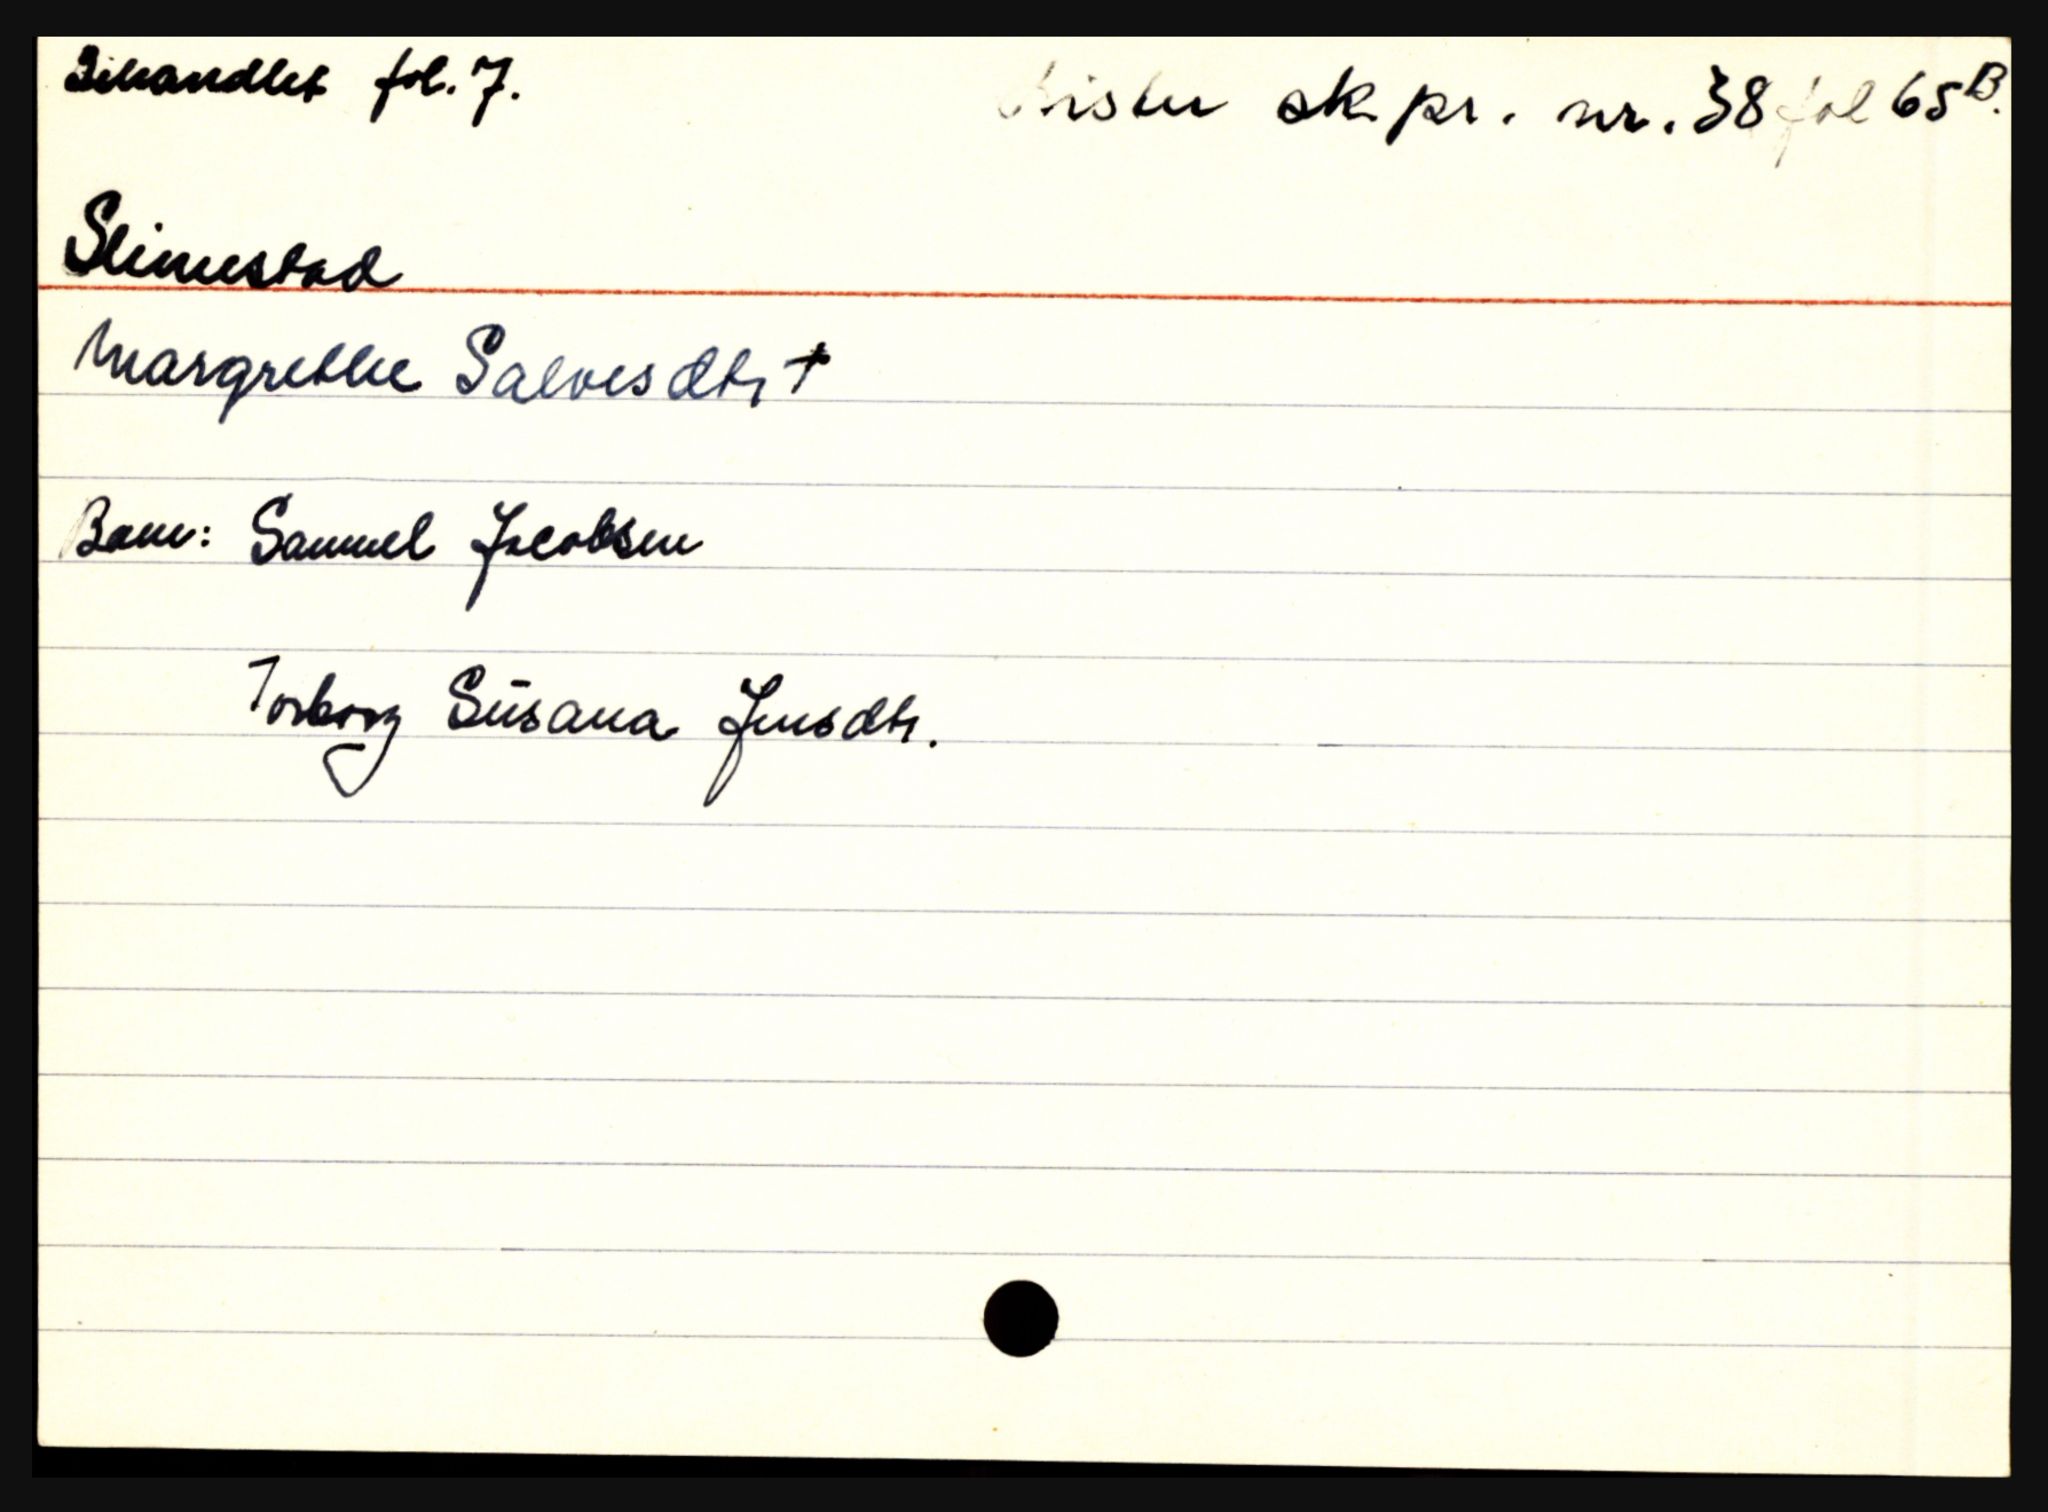 Behandlet fol. 7.
Lister sk. pr. nr. 38 fol 65 B.
Slimestad
Margrethe Salvesdtr †
Barn: Samuel Jacobsen
Torborg Susana Jensdtr.